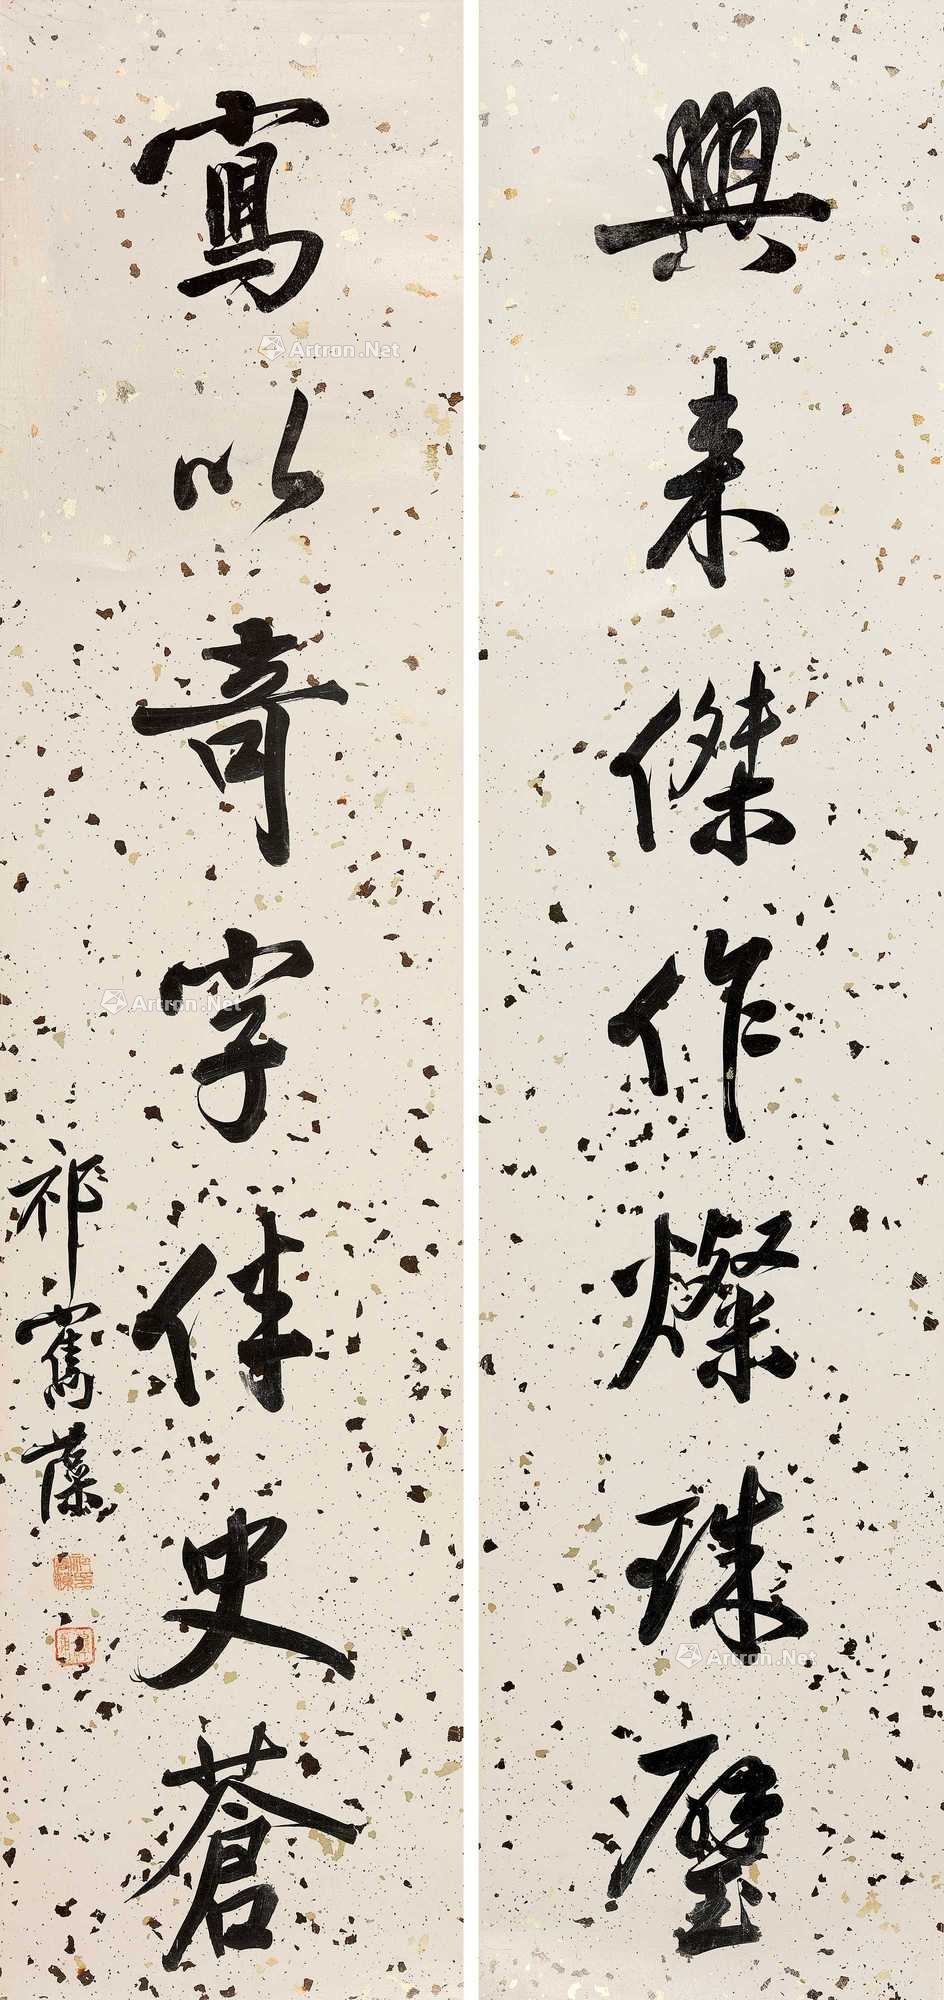 興来傑作燦珠璧
寫以奇字佳史蒼
祁寯藻
Artron.Net
Artron.Net
Artron.Net